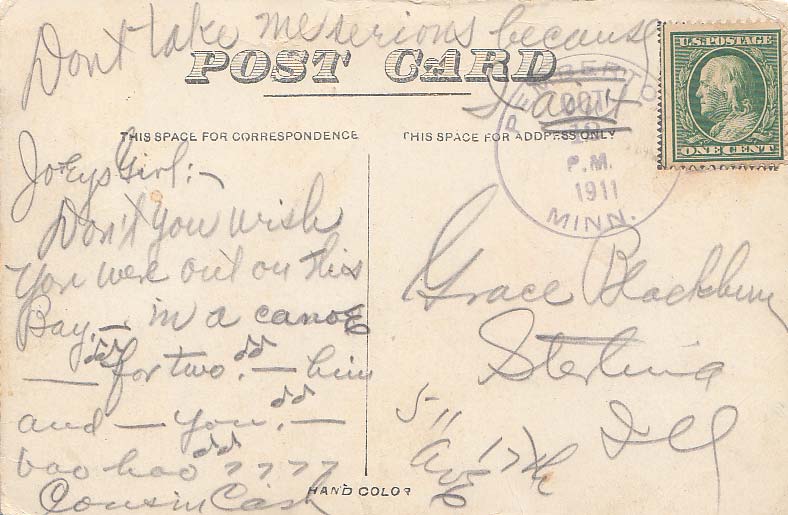 Dont take me serious because
POST CARD
U.S. POSTAGE
ONE CENT
PEMBERTON
OCT
P.M.
1911
MINN.
THIS SPACE FOR CORRESPONDENCE
THIS SPACE FOR ADDRESS ONLY
Girl:-
Don't you wish
you were out on this
Bay, - in a canoe
— for two, - him
and — you, -
boo hoo ? ? ? ?
Cousin Cash
Grace Blackburn
Sterling
Ill
511
Ave 17th
HAND COLOR